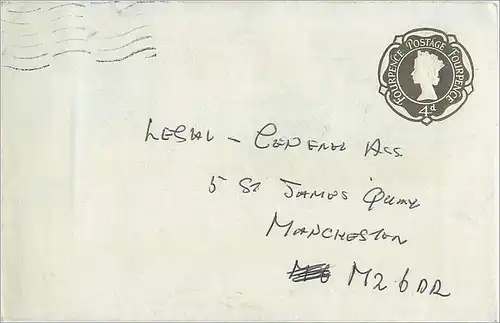 FOURPENCE POSTAGE FOURPENCE
4d
LEGAL - GENERAL ASS.
5 ST JAMES QUAY
MANCHESTER
M2 6DR